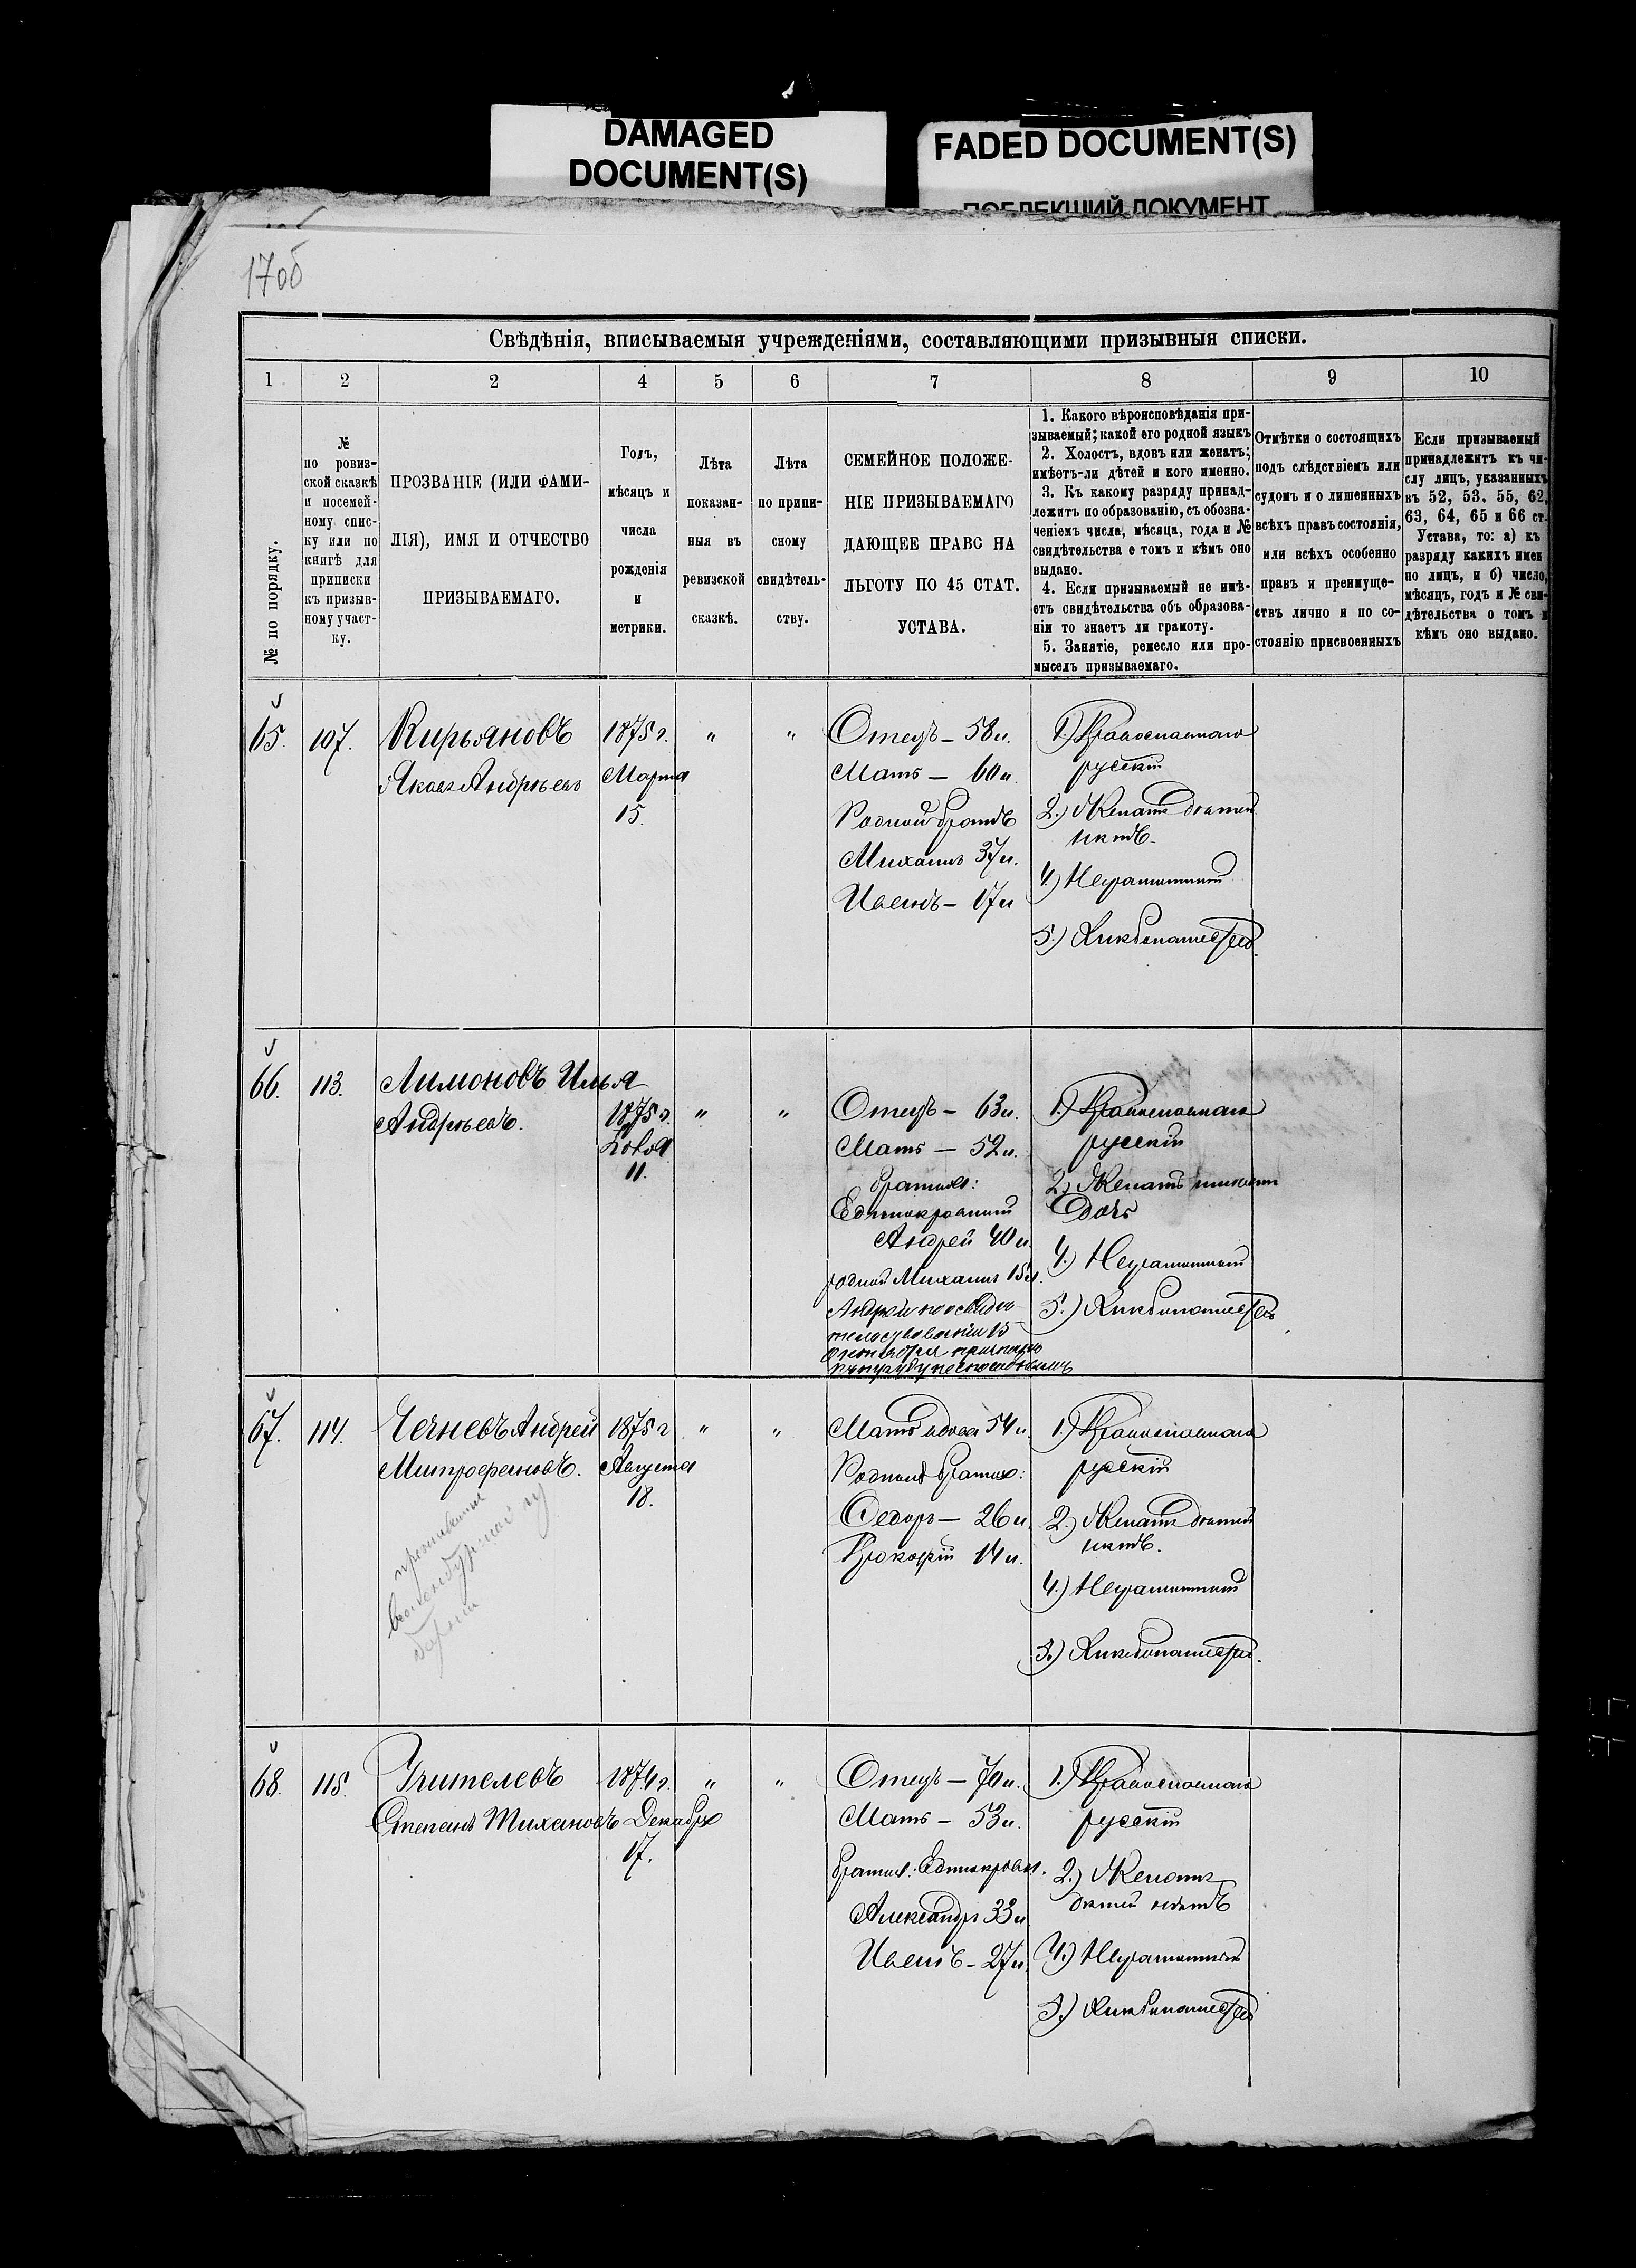 DAMAGED
DOCUMENT(S)
FADED DOCUMENT(S)
ПОБЛЕКШИЙ ДОКУМЕНТ
17об
Свѣдѣнія, вписываемыя учрежденіями, составляющими призывныя списки.
1 2 2 4 5 6 7 8 9 10
№ по порядку.
№
по ровиз-
ской сказкѣ
и посемей-
ному спис-
ку или по
книгѣ для
приписки
къ призыв-
ному участ-
ку.
ПРОЗВАНІЕ (ИЛИ ФАМИ-
ЛІЯ), ИМЯ И ОТЧЕСТВО
ПРИЗЫВАЕМАГО.
Годъ,
мѣсяцъ и
числа
рожденія
и
метрики.
Лѣта
показан-
ныя въ
ревизской
сказкѣ.
Лѣта
по припи-
сному
свидѣтель-
ству.
СЕМЕЙНОЕ ПОЛОЖЕ-
НІЕ ПРИЗЫВАЕМАГО
ДАЮЩЕЕ ПРАВО НА
ЛЬГОТУ ПО 45 СТАТ.
УСТАВА.
1. Какого вѣроисповѣданія при-
зываемый; какой его родной языкъ
2. Холостъ, вдовъ или женатъ;
имѣетъ-ли дѣтей и кого именно.
3. Къ какому разряду принад-
лежитъ по образованію, съ обозна-
ченіемъ числа, мѣсяца, года и №
свидѣтельства о томъ и кѣмъ оно
выдано.
4. Если призываемый не имѣ-
етъ свидѣтельства объ образова-
ніи то знаетъ ли грамоту.
5. Занятіе, ремесло или про-
мыселъ призываемаго.
Отмѣтки о состоящихъ
подъ слѣдствіемъ или
судомъ и о лишенныхъ
всѣхъ правъ состоянія,
или всѣхъ особенно
правъ и преимуще-
ствъ лично и по со-
стоянію присвоенныхъ
Если призываемый
принадлежитъ къ чи-
слу лицъ, указанныхъ
въ 52, 53, 55, 62,
63, 64, 65 и 66 ст.
Устава, то: а) къ
разряду какихъ имен
но лицъ, и б) число,
мѣсяцъ, годъ и № сви-
дѣтельства о томъ и
кѣмъ оно выдано.
65. 107. Кирьяновъ 1875 г. " "
Яковъ Андрѣевъ Марта
15.
Отецъ – 58 л.
Мать – 60 л.
Родной братъ
Михаилъ 37 л.
Иванъ – 17 л
1.) Православнаго
русскій
2.) Женатъ дѣтей
нѣтъ.
4.) Неграмотный
5.) Хлѣбопашествъ.
66. 113. Лимоновъ Илья
Андрѣевъ. 1875 г. " "
11.
Отецъ – 63 л.
Мать – 52 л.
братья:
Единокровный
Андрей 40 л.
родной Михаилъ 15 л.
1.) Православнаго
русскій
2.) Женатъ имѣетъ
дочь
4.) Неграмотный
5.) Хлѣбопашествъ
67. 114. Чечневъ Андрей 1875 г " "
Митрофановъ. Августа
18.
Мать вдова 54 л.
Родные братья:
Федоръ – 26 л.
Прокофій 14 л.
1.) Православнаго
русскій
2.) Женатъ дѣтей
нѣтъ.
4.) Неграмотный
5.) Хлѣбопашествъ.
68. 115. Учителевъ 1874 г. " "
Степанъ Тихановъ Декабря
17.
Отецъ – 70 л.
Мать – 53 л.
братья: Единокровн.
Александръ 33 л
Иванъ – 27 л.
1.) Православнаго
русскій
2.) Женатъ
дѣтей нѣтъ
4.) Неграмотный
5.) Хлѣбопашествъ